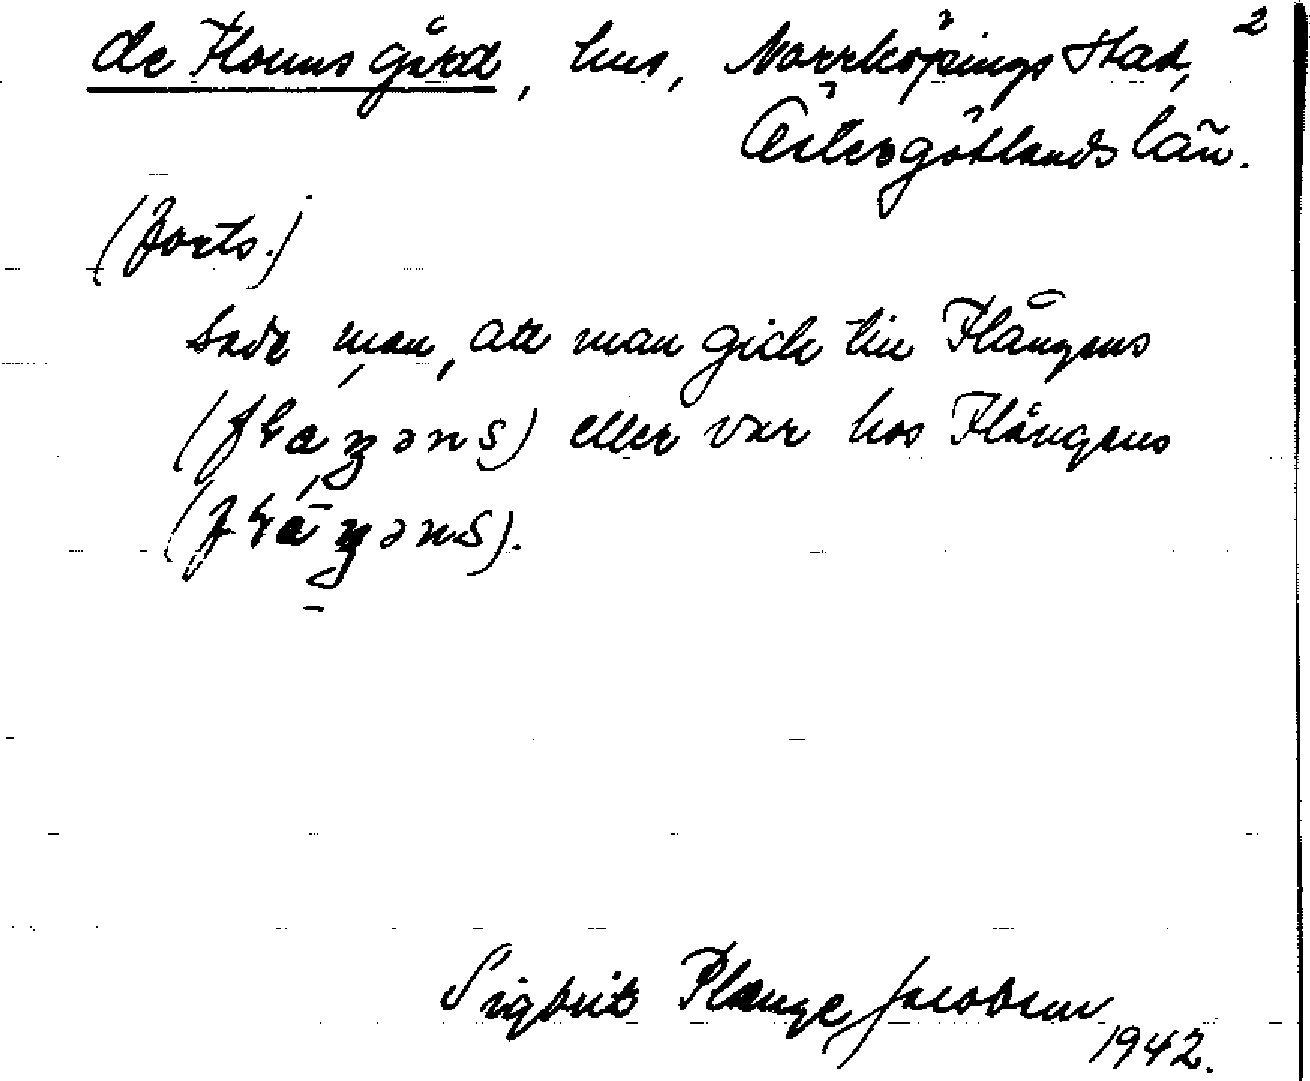 de Flouns gård, hus, Norrköpings stad, 2
Östergötlands län.
(forts.)
sade man, att man gick till Flångens
eller var hos Flångens
Sigbrit Plænge Jacobson
1942.